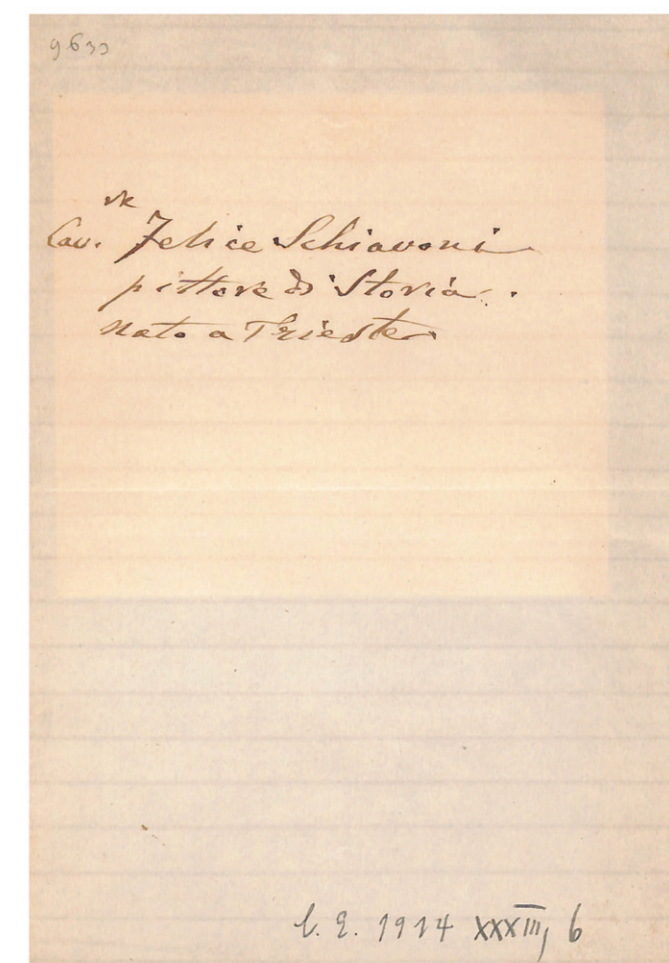 9633
Cav. Felice Schiavoni
pittore di Storia.
nato a Trieste
1914 XXXIII, 6